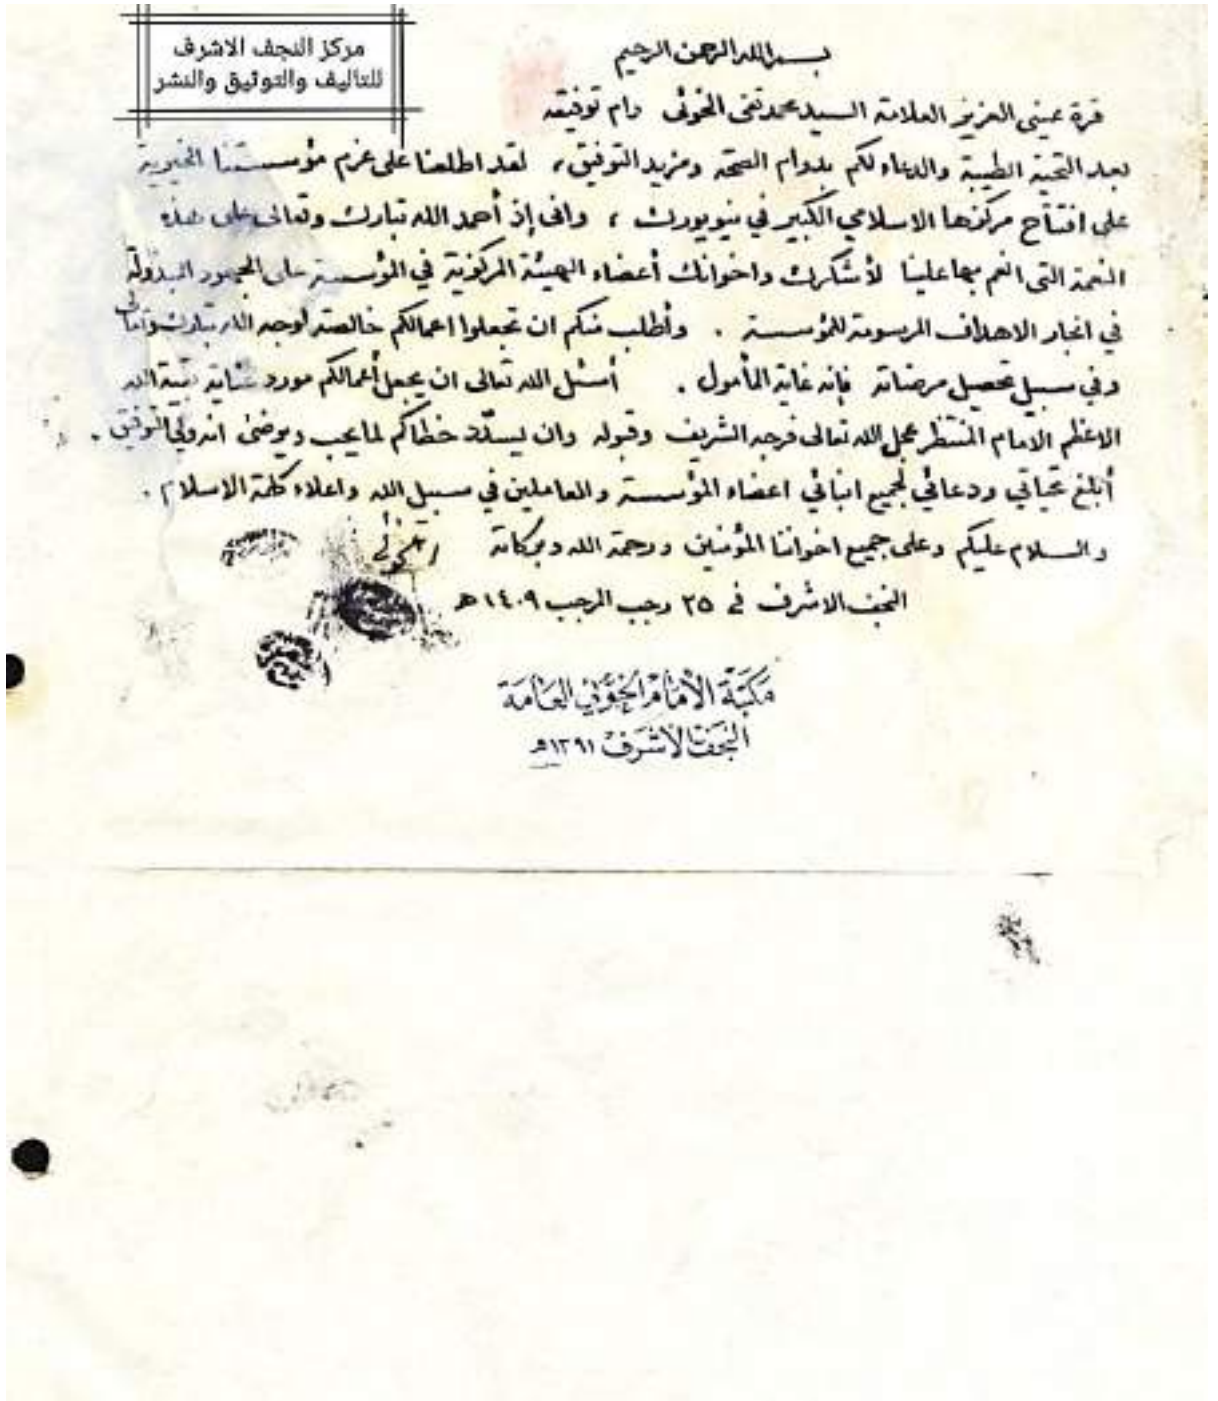 مركز النجف الاشرف
للتأليف والتوثيق والنشر
بسم الله الرحمن الرحيم
قرة عيني العزيز العلامة السيد محمد تقي الخوئي دام توفيقه
بعد التحية الطيبة والدعاء لكم بدوام الصحة ومزيد التوفيق، لقد اطلعنا على عزم مؤسستنا الخيرية
على افتتاح مركزها الاسلامي الكبير في نيويورك ، وانى إذ أحمد الله تبارك وتعالى على هذه
النعمة التى انعم بها علينا لأشكرك واخوانك أعضاء الهيئة المركزية في المؤسسة على الجهود المبذولة
في انجاز الاهداف المرسومة للمؤسسة . وأطلب منكم ان تجعلوا اعمالكم خالصة لوجه الله تبارك وتعالى
وفي سبيل تحصيل مرضاته فإنه غاية المأمول . أسئل الله تعالى ان يجعل أعمالكم مورد عناية بقية الله
الاعظم الامام المنتظر عجل الله تعالى فرجه الشريف وقبوله وان يسدّد خطاكم لما يحب ويرضى انه ولي التوفيق .
أبلغ تحياتي ودعائي لجميع ابنائي اعضاء المؤسسة والعاملين في سبيل الله واعلاء كلمة الاسلام .
والسلام عليكم وعلى جميع اخواننا المؤمنين ورحمة الله وبركاته الخوئي
النجف الاشرف في ٢٥ رجب المرجب ١٤٠٩ هـ
مكتبة الإمام الخوئي العامة
النجف الأشرف ١٣٩١هـ